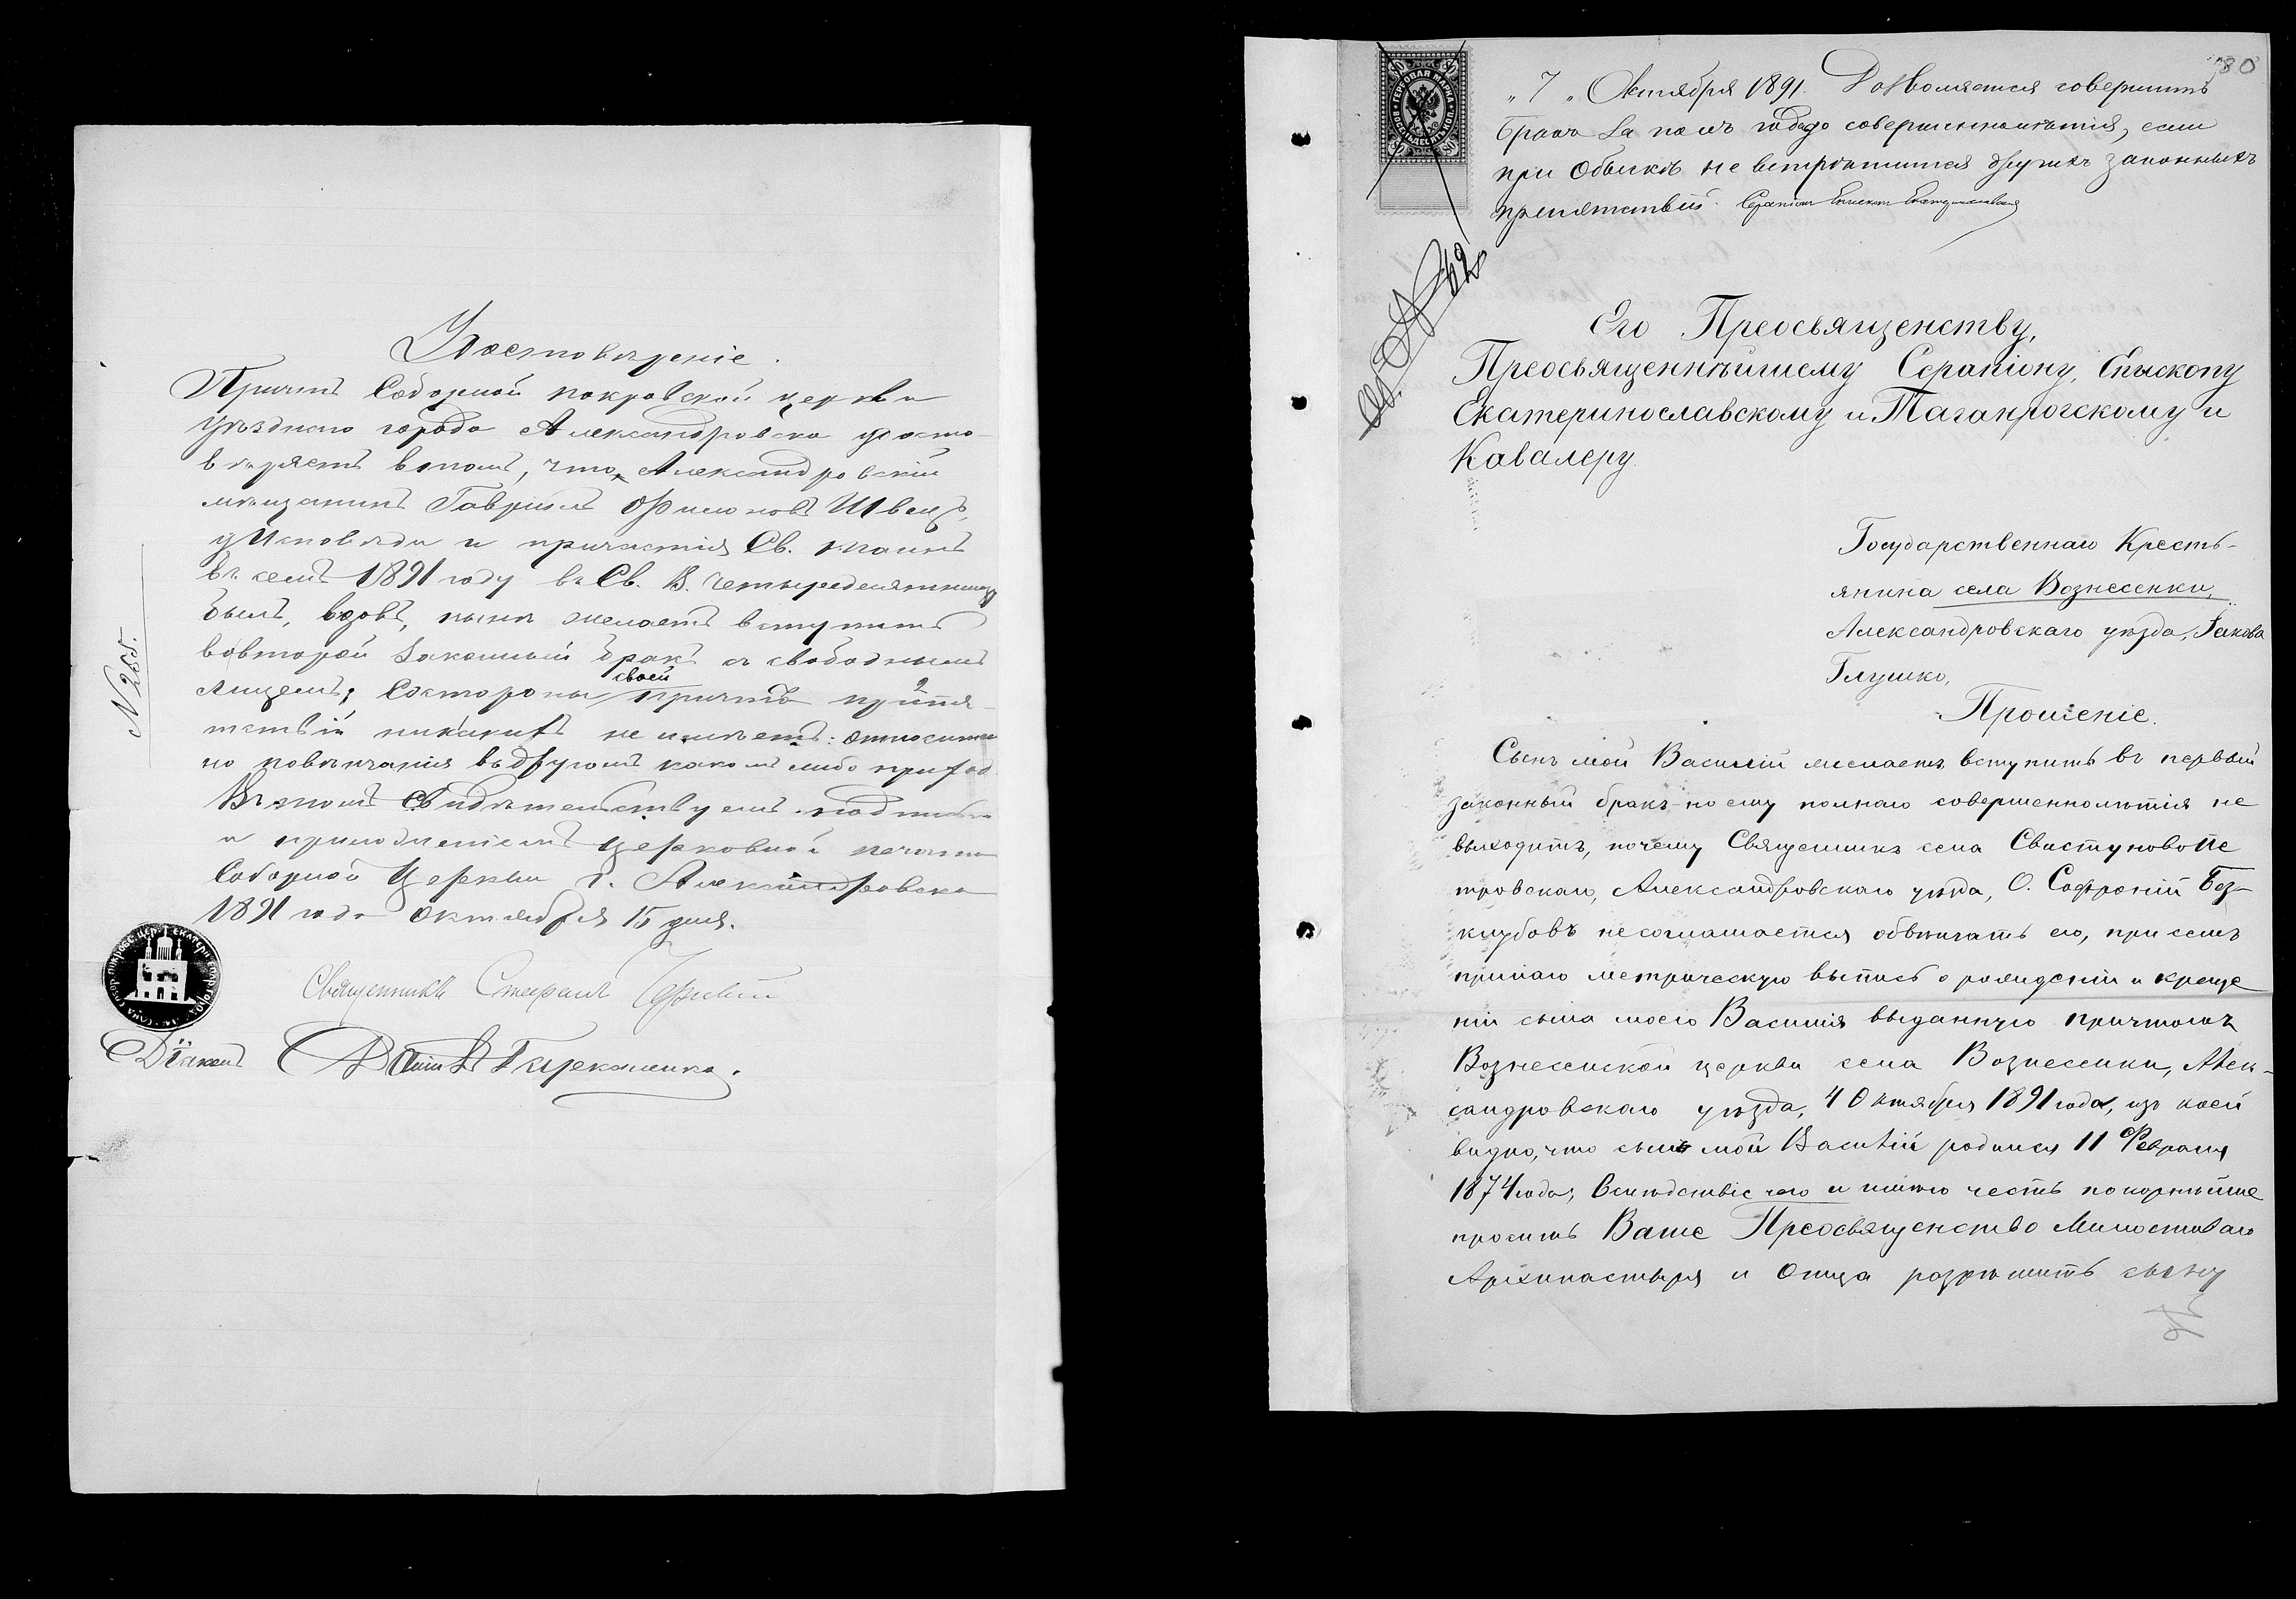 Удостовѣреніе.
Причтъ Соборной покровской церкви
уѣзднаго города Александровска удосто-
вѣряетъ въ томъ, что Александровскій
мѣщанинъ Гавріилъ Филоновъ Швецъ,
у Исповѣди и причастія Св. Таинъ
въ семъ 1891 году въ Св. В. Четыредесятницу
былъ, вдовъ, нынѣ желаетъ вступить
во второй законный бракъ съ свободнымъ
лицемъ; Состороны своей причтъ препя-
тствій никакихъ не имѣетъ: относитель
но повѣнчанія въ другомъ какомъ либо приход
Въ томъ свидѣтельствуемъ подписью
и приложеніемъ церковной печати
Соборной Церкви г. Александровска
1891 года Октября 15 дня.
N 255.
Священникъ Стефанъ
Діаконъ
80
„7„ Октября 1891. Дозволяется совершить
бракъ за полъ года до совершеннолѣтія, если
при обыскѣ не встрѣтится другихъ законныхъ
препятствій. Серапіонъ Епископъ Екатеринославскій
ГЕРБОВАЯ МАРКА
ВОСЕМЬДЕСЯТЪ КОП.
80 80
80 80
Его Преосвященству,
Преосвященнѣйшему Серапіону, Епископу
Екатеринославскому и Таганрогскому и
Кавалеру.
Государственнаго Кресть-
янина села Вознесенки,
Александровскаго уѣзда, Іакова
Глушко,
Прошеніе.
Сынъ мой Василій желаетъ вступить въ первый
законный бракъ но ему полнаго совершеннолѣтія не
выходитъ, почему Священникъ села Свистуново Пе
тровскаго, Александровскаго уѣзда, О. Софроній Без-
клубовъ не соглашается обвѣнчать его, при семъ
прилаго метрическую выпись о рожденіи и креще
ніи сына моего Василія выданную причтомъ
Вознесенской церкви села Вознесенки, Алек-
сандровскаго уѣзда, 4 Октября 1891 года, изъ коей
видно, что сынъ мой Василій родился 11 Февраля
1874 года; вслѣдствіе чего и имѣю честь покорнѣйше
просить Ваше Преосвященство Милостиваго
Архипастыря и Отца разрѣшить сыну